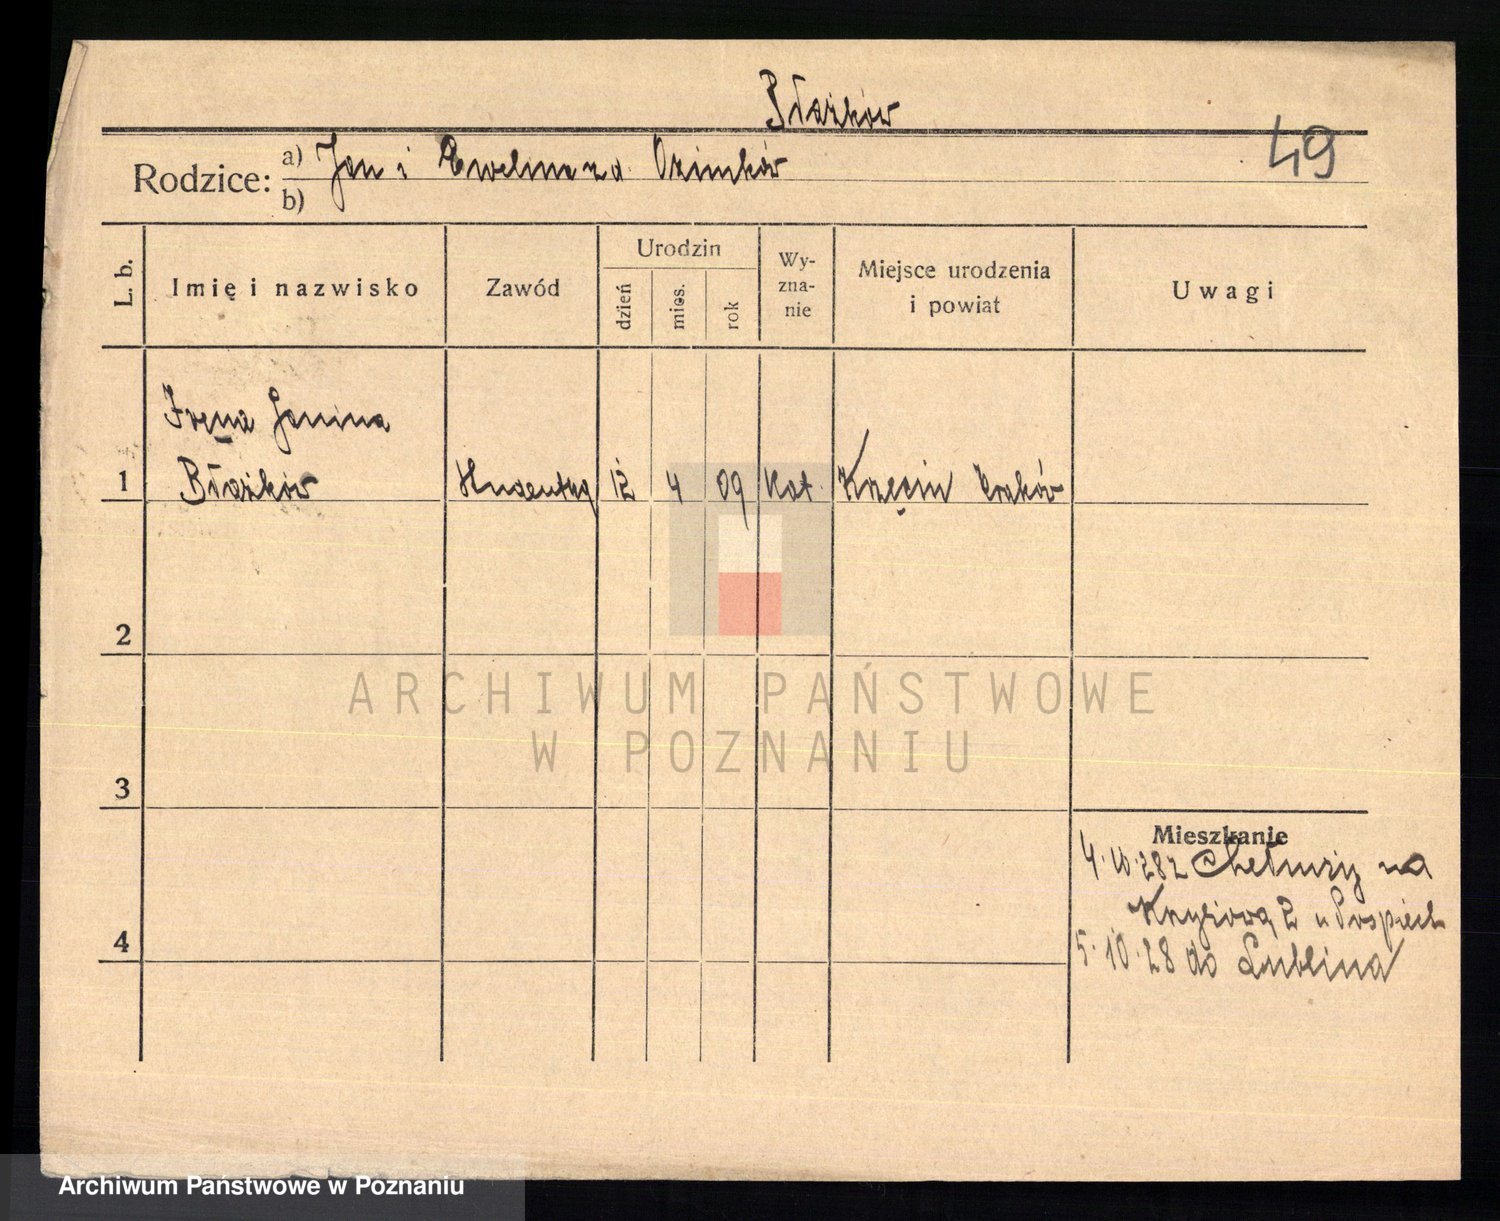 Błażków
49
Rodzice: a) Jan i Ewelina z d. Ozimków
b)
L. b. Imię i nazwisko Zawód Urodzin dzień mies. rok Wyzna-nie Miejsce urodzenia i powiat Uwagi
Irena Janina
1 Błażków Studentka 12 4 09 Kat. Krzęcin Kraków
2
ARCHIWUM PAŃSTWOWE
W POZNANIU
3
Mieszkanie
4.10.28 z Chełmży na
2 u Pospiech
4
5.10.28 do Lublina
Archiwum Państwowe w Poznaniu